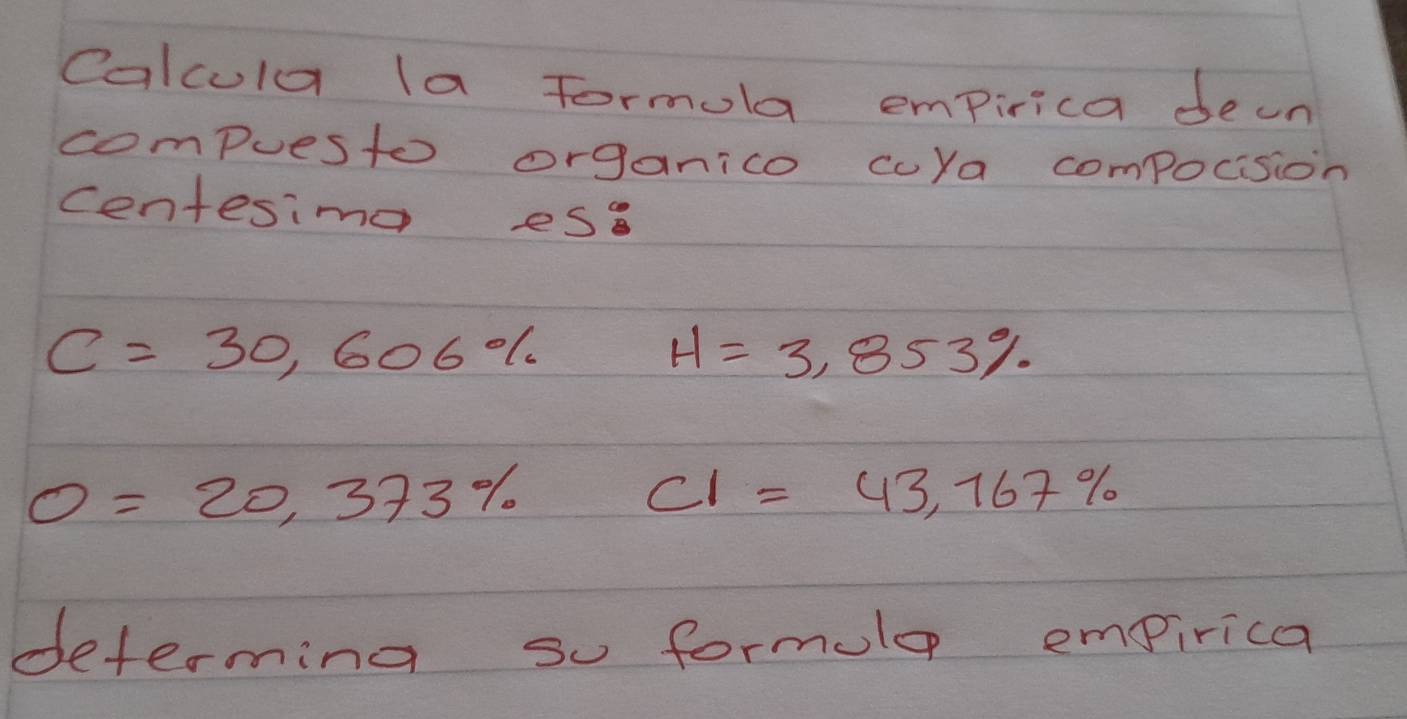 Calcula la Formula empirica de un
compuesto organico cuya compocisión
centesima es:
C = 30,606% H = 3,853%
O = 20,373% Cl = 43,167%
determina su formula empirica